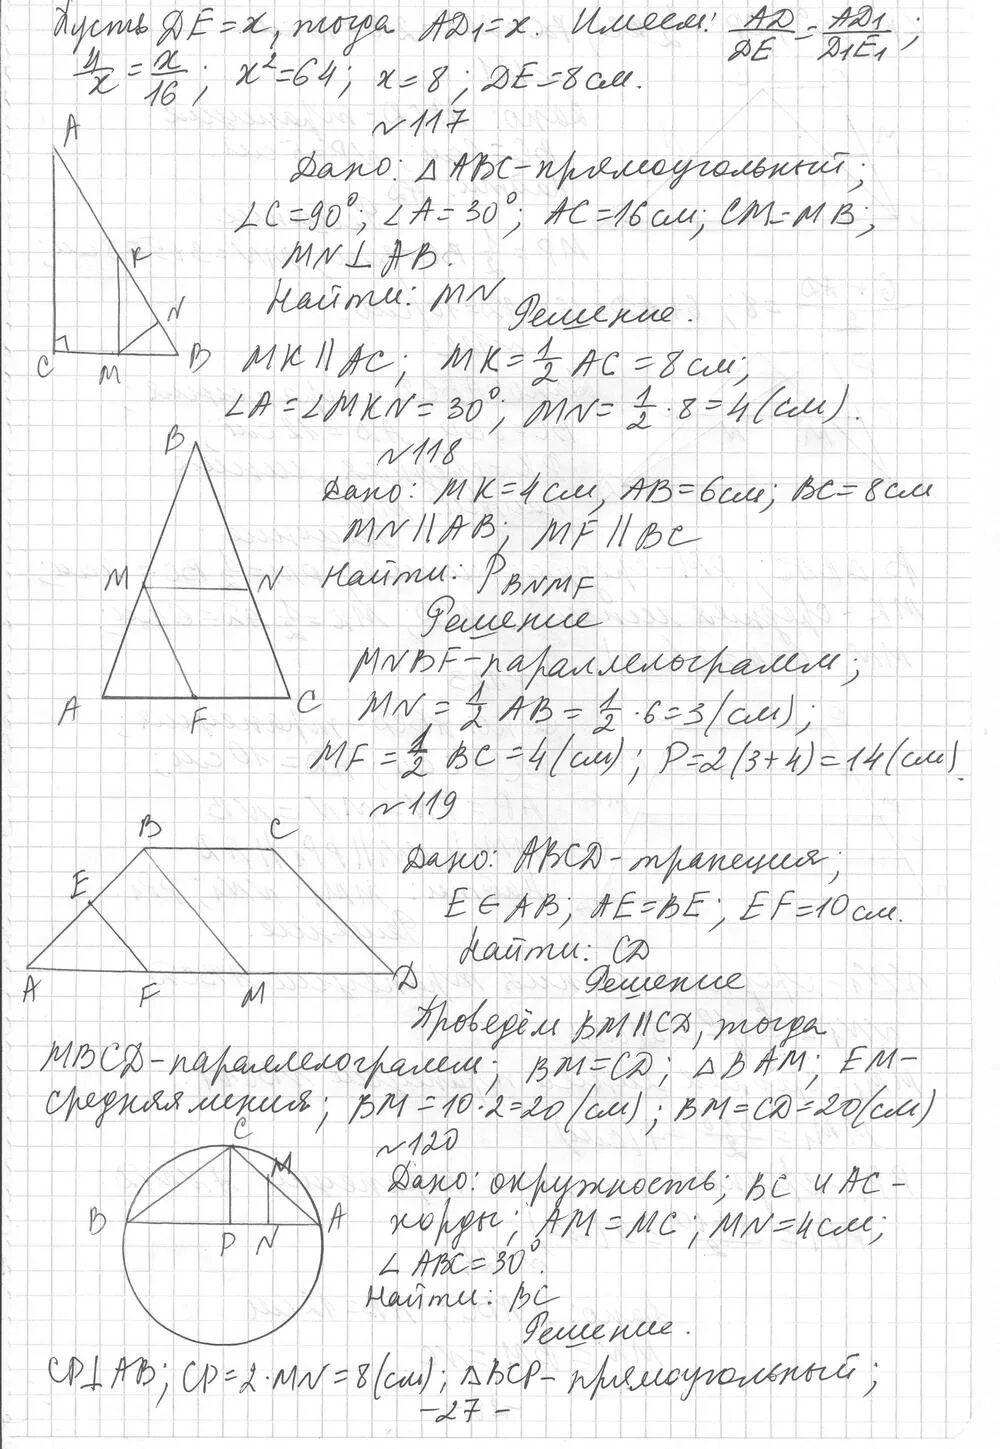 Пусть DE = x, тогда AD₁ = x. Имеем: AD/DE = AD₁/D₁E₁;
4/x = x/16; x² = 64; x = 8; DE = 8 см.
№117
A
Дано: △ABC - прямоугольный;
∠C = 90°; ∠A = 30°; AC = 16 см; CM = MB;
K
MN ⊥ AB.
N
Найти: MN
Решение.
C M B
MK ∥ AC; MK = 1/2 AC = 8 см;
∠A = ∠MKN = 30°; MN = 1/2 · 8 = 4 (см).
№118
B
Дано: MK = 4 см, AB = 6 см; BC = 8 см
MN ∥ AB; MF ∥ BC
M N
Найти: P BNMF
Решение
MNBF - параллелограмм;
A F C
MN = 1/2 AB = 1/2 · 6 = 3 (см);
MF = 1/2 BC = 4 (см); P = 2(3+4) = 14 (см).
№119
B C
Дано: ABCD - трапеция;
E
E ∈ AB; AE = BE; EF = 10 см.
Найти: CD
A F M D
Решение
Проведём BM ∥ CD, тогда
MBCD - параллелограмм; BM = CD; △BAM; EM -
средняя линия; BM = 10 · 2 = 20 (см); BM = CD = 20 (см)
№120
C
M
Дано: окружность; BC и AC -
B A
хорды; AM = MC; MN = 4 см;
P N
∠ABC = 30°.
Найти: BC
Решение.
CP ⊥ AB; CP = 2 · MN = 8 (см); △BCP - прямоугольный;
- 27 -